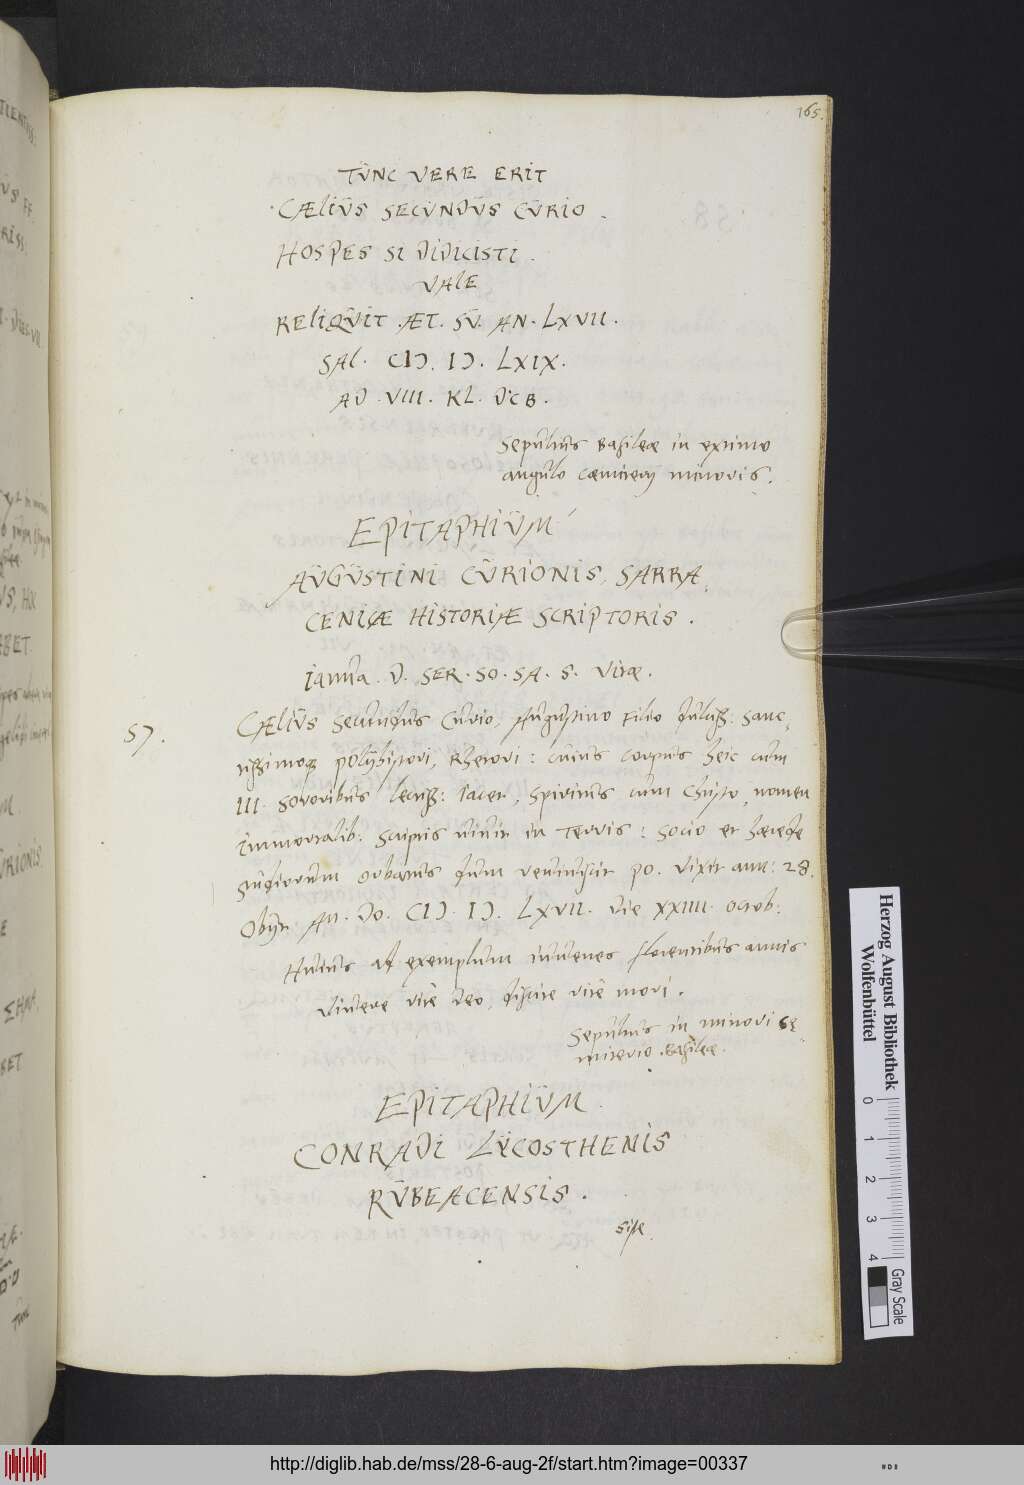 165.
TUNC VERE ERIT
CÆLIUS SECUNDUS CURIO.
HOSPES SI DIDICISTI.
VALE
RELIQUIT ÆT. SU. AN. LXVII.
SAL. CIƆ. IƆ. LXIX.
AD. VIII. KL. DCB.
Sepultus Basileæ in extimo
angulo cæmiterij minoris.
EPITAPHIUM
AUGUSTINI CURIONIS, SARRA,
CENICÆ HISTORIÆ SCRIPTORIS.
Ianua. D. SER. SO. SA. S. Vitæ.
57.
CÆLIUS Secundus Curio, Augustino Filio dulciß: Sanc,
tißimoq; polÿhistori, Rhetori: cuius corpus heic cum
III. Sororibus lectiß: iacet, Spiritus cum Christo, nomen
immortalib: scriptis vivit in Terris: socio et hærede
studiorum orbatus dum revivisčit po. Vixit ann: 28.
Obÿt. An. Do. CIƆ. IƆ. LXVII. die XXIIII. Octob:
Huius ad exemplum iuvenes florentibus annis
Vivere rite Deo, discite rite mori.
Sepultus in minori Cę
miterio Basileæ.
EPITAPHIUM
CONRADI LYCOSTHENIS
RUBEACENSIS.
Herzog August Bibliothek
Wolfenbüttel
0 1 2 3 4
Gray Scale
http://diglib.hab.de/mss/28-6-aug-2f/start.htm?image=00337